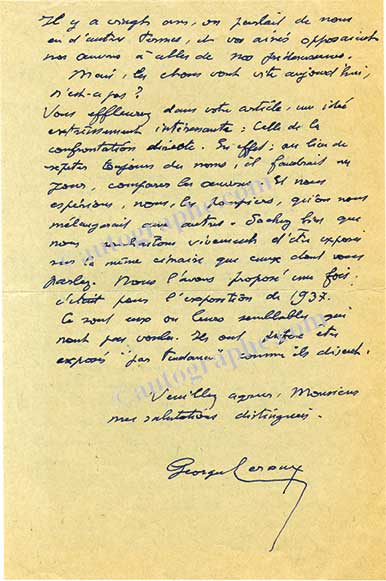 Il y a vingt ans, on parlait de nous
en d'autres termes, et vos aînés opposaient
nos œuvres à celles de nos prédécesseurs.
Mais, les choses vont vite aujourd'hui,
n'est-ce pas ?
Vous effleurez dans votre article, une idée
extrêmement intéressante : celle de la
confrontation directe. En effet : au lieu de
répéter toujours des noms, il faudrait un
jour, comparer les œuvres. Et nous
espérions, nous, les pompiers, qu'on nous
mélangerait aux autres. Sachez bien que
nous souhaitons vivement d'être exposés
sur la même cimaise que ceux dont vous
parlez. Nous l'avons proposé une fois :
c'était pour l'exposition de 1937.
Ce sont eux ou leurs semblables qui
n'ont pas voulu. Ils ont préféré être
exposés "par tendance" comme ils disent.
Veuillez agréer, Monsieur
mes salutations distinguées.
Georges Leroux
©autographe.com
©autographe.com